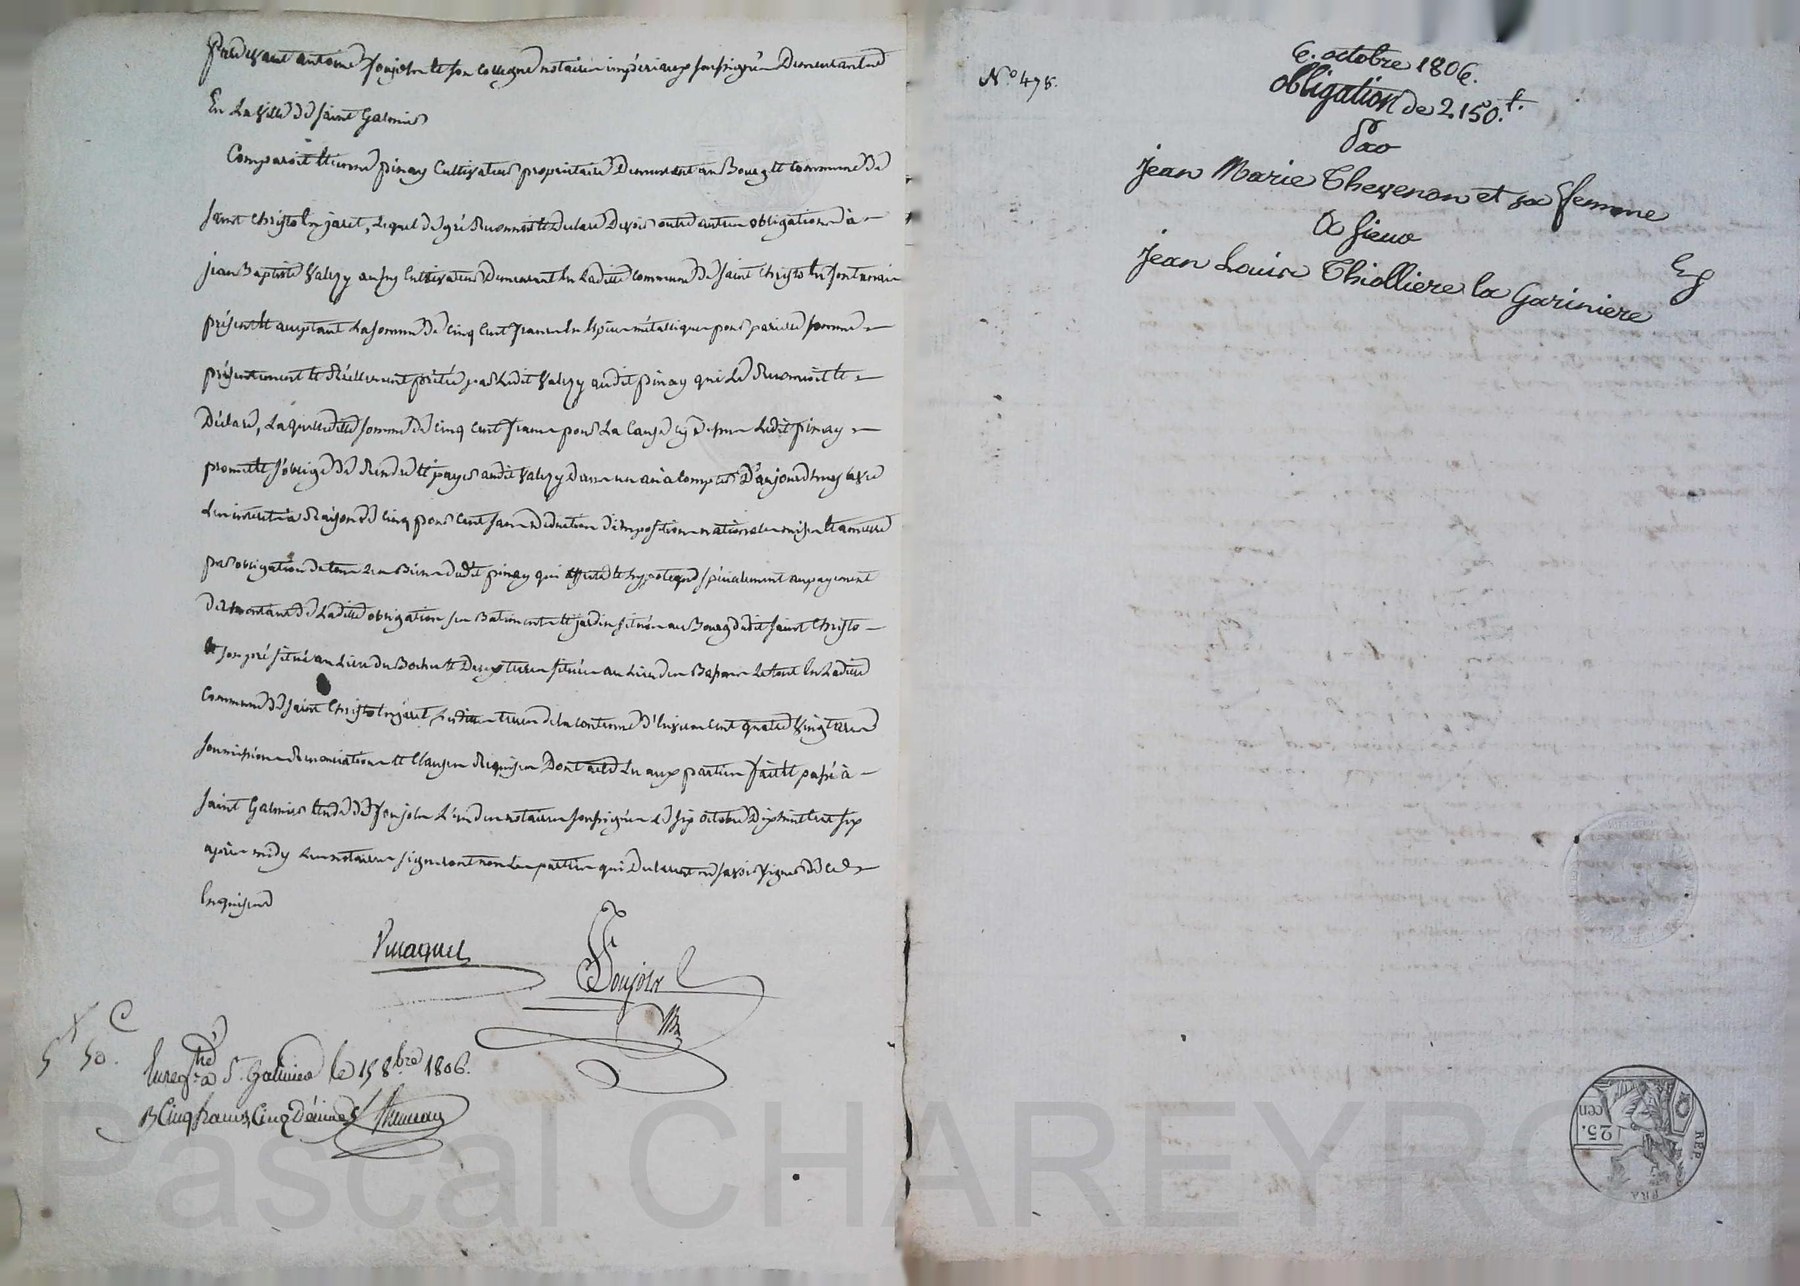 Pardevant antoine foujols et son collegue notaires impériaux soussignés Demeurant
En La ville de saint Galmier
Comparoit pinay Cultivateur proprietaire Demeurant au Bourg et Commune de
saint christo en jaret, Lequel de gré Reconnoit et declare devoir outre autre obligation à
jean Baptiste Valezy aussy Cultivateur Demeurant en Ladite Commune de saint christo en fontanais
présent et acceptant La somme de cinq cent francs en Espèces métalliques pour pareille somme
présentement et Réellement prétée par Ledit Valezy audit pinay qui Le Reconnoit et
Déclare, Laquelle dite somme de cinq cent francs pour La Cause cy dessus Ledit pinay
promet et s'oblige de Rendre et payer audit Valezy dans un an à Compter D'aujourd'huy avec
Les intérêts à Raison de cinq pour Cent sans déduction d'imposition nationales mises et a mettre
par obligation de tous Les Biens dudit pinay qui affecte et hypotèque spécialement au payement
du montant de Ladite obligation ses Batiments et jardin situés au Bourg dudit saint Christo
et son pré situé au Lieu du Bochu et Deux terres situées au Lieu des Le tout en Ladite
Commune de saint Christo en jaret, Lesdites terres de la contenue d'Environ Cent quatre vingt
soumissions Renonciations et Clauses Requises Dont acte Lu aux parties fait et passé à
saint Galmier Etude de foujols L'un des notaires soussignés Le six octobre Dix huit cent six
après midy Les notaires signeront non Les parties qui Declarent ne savoir signer de ce
Enquises
Foujols
5f 50c.
Enregtré à St. Galmier le 15 8bre 1806.
R Cinq francs, Cinq Décimes
N° 475.
6. octobre 1806.
obligation de 2150.f.
Par
jean Marie Thevenon et sa femme
A sieur
jean Louis Thiolliere la Gariniere
Eg
25. cen
REP. FRA
Pascal CHAREYRON